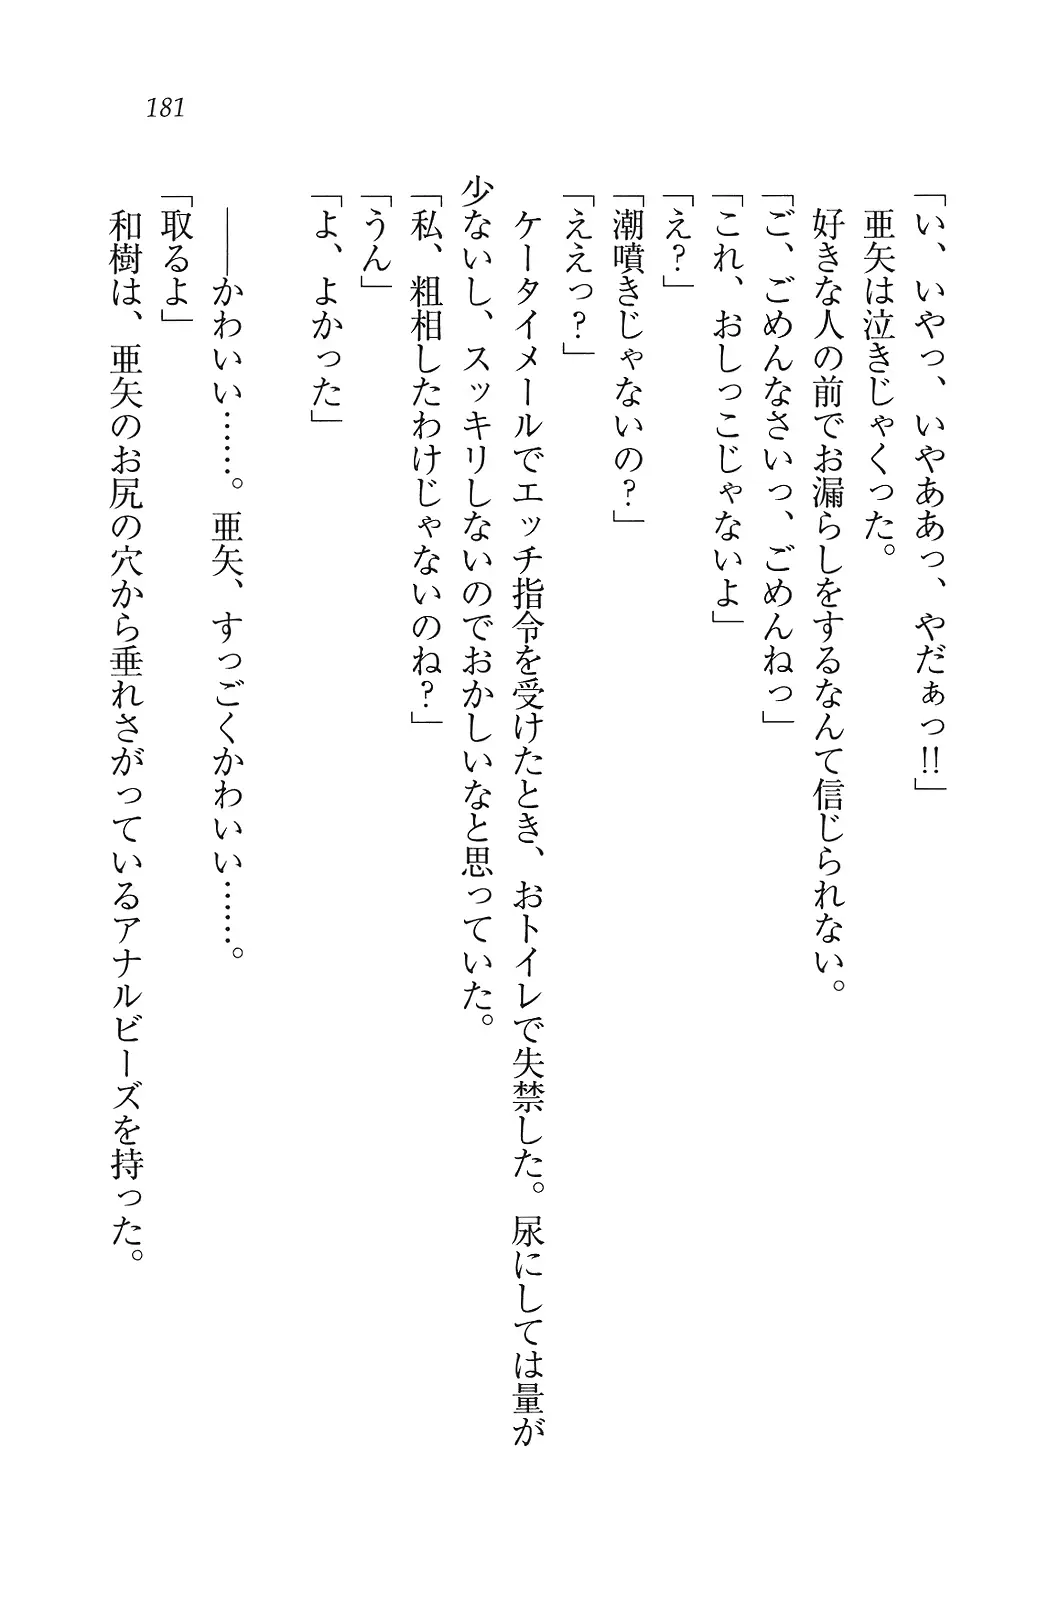 181
「い、いやっ、いやああっ、やだぁっ!!」
亜矢は泣きじゃくった。
好きな人の前でお漏らしをするなんて信じられない。
「ご、ごめんなさいっ、ごめんねっ」
「これ、おしっこじゃないよ」
「え？」
「潮噴きじゃないの？」
「ええっ？」
ケータイメールでエッチ指令を受けたとき、おトイレで失禁した。尿にしては量が
少ないし、スッキリしないのでおかしいなと思っていた。
「私、粗相したわけじゃないのね？」
「うん」
「よ、よかった」
――かわいい……。亜矢、すっごくかわいい……。
「取るよ」
和樹は、亜矢のお尻の穴から垂れさがっているアナルビーズを持った。